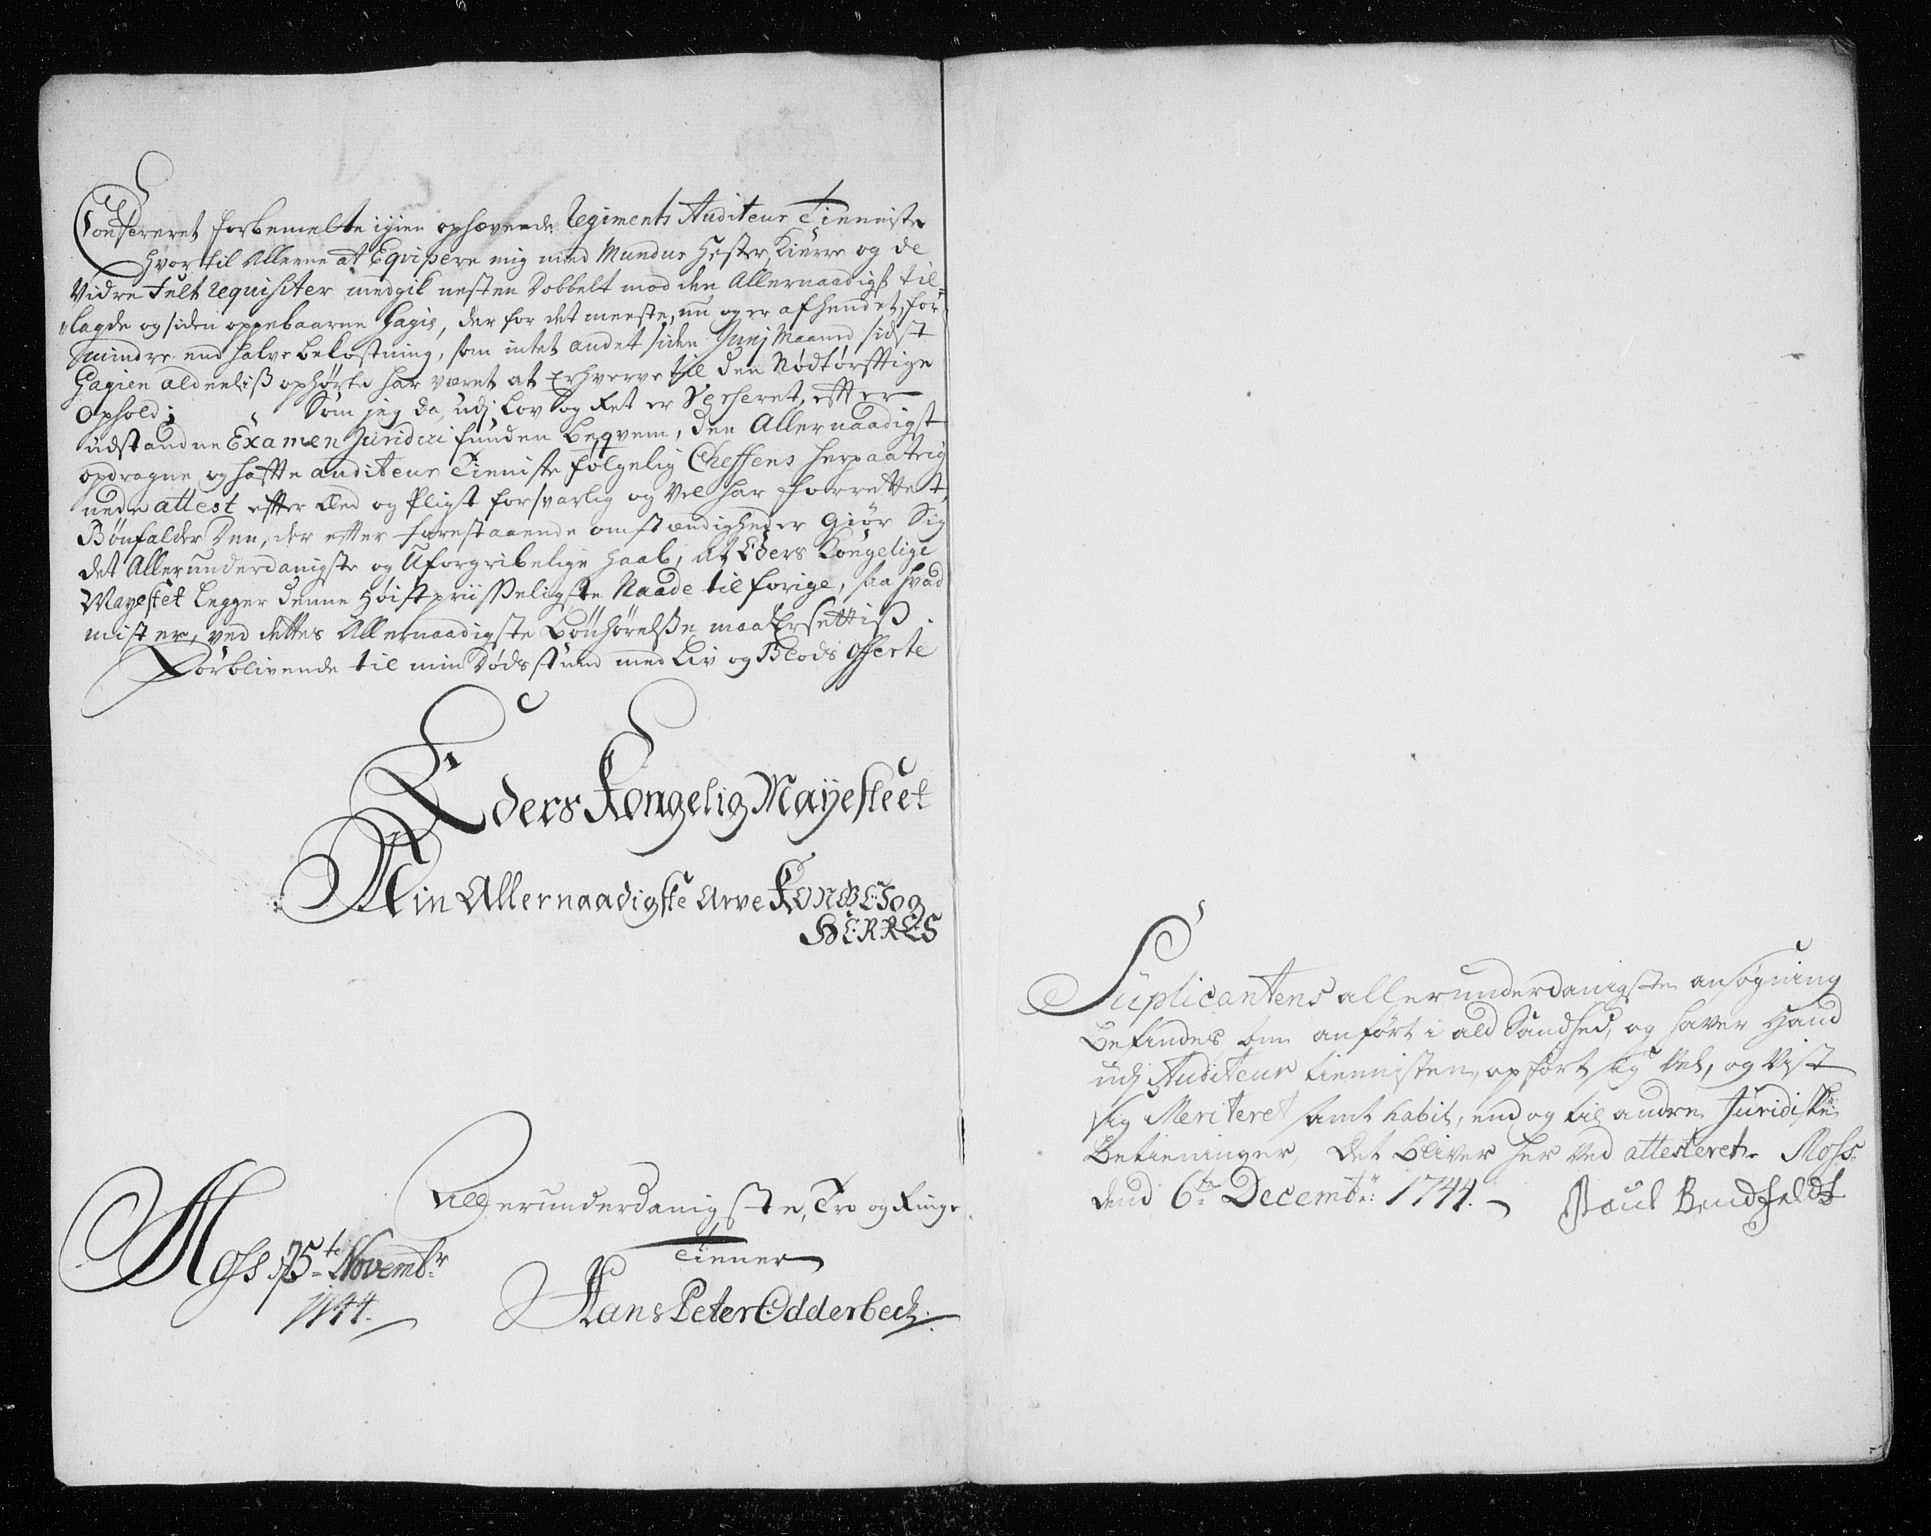 Confereret forbemelte igien ophævende Regiments Auditeur Tienniste
hvor til Alleene at Eqvipere mig med Mundur Hester, Kierre og de
Vidre Felt Requisiter medgik nesten Dobbelt mod den Allernaadigst til-
lagde og siden oppebaarne Gagie, der for det meeste, nu og er afhendet, for
mindre end halve bekostning, som intet andet siden Junj Maaned sidst
Gagien aldeeliß ophørte har været at Erhverve til den Nødtørfftige
Ophold; Som jeg da, udj Lov og Ret er Verseret, effter
udstandne Examen Juridici funden beqvem, den Allernaadigst
opdragne og haffte auditeur Tienniste følgelig Cheffens herpaateig
nede attest effter Eed og Pligt forsvarlig og Vel har forrettet,
Bønfalder Den, der effter forestaaende omstændigheder Giør Sig
det Allerunderdanigste og Uforgribelige haab, at Eders Kongelige
Mayestet Legger denne Høistpriisseligste Naade til forige, saa hvad
mister, ved dettes Allernaadigste Bønhørelße maa Ersettiß.
Forblivende til min Dødsstund med Liv og Blods Offerte
Eders Kongelig Mayesteet
Min Allernaadigste Arve KONGES og
HERRES
Allerunderdanigste, Tro og Ringe
Tienner
Moss 25te Novembr
1744.
Hans Peter Odderbech.
Suplicantens allerunderdanigste ansøgning
befindes som anført i ald Sandhed, og haver Hand
udj Auditeur tiennisten, opført sig Vel, og Vist
sig Meriteret samt habil, end og til andre Juridiske
Betieninger, Det bliver her ved attesteret. Moss
dend 6te Decembr: 1744.
Poul Bendfeldt